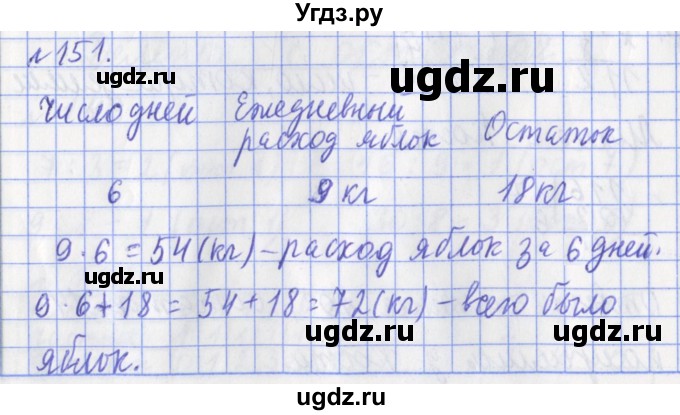 Угдз.ру
№151.
ugdz.ru ugdz.ru
Число дней Ежедневный расход яблок Остаток
ugdz.ru
6 9 кг 18 кг
9 · 6 = 54 (кг) – расход яблок за 6 дней.
ugdz.ru
9 · 6 + 18 = 54 + 18 = 72 (кг) – всего было
ugdz.ru
яблок.
ugdz.ru